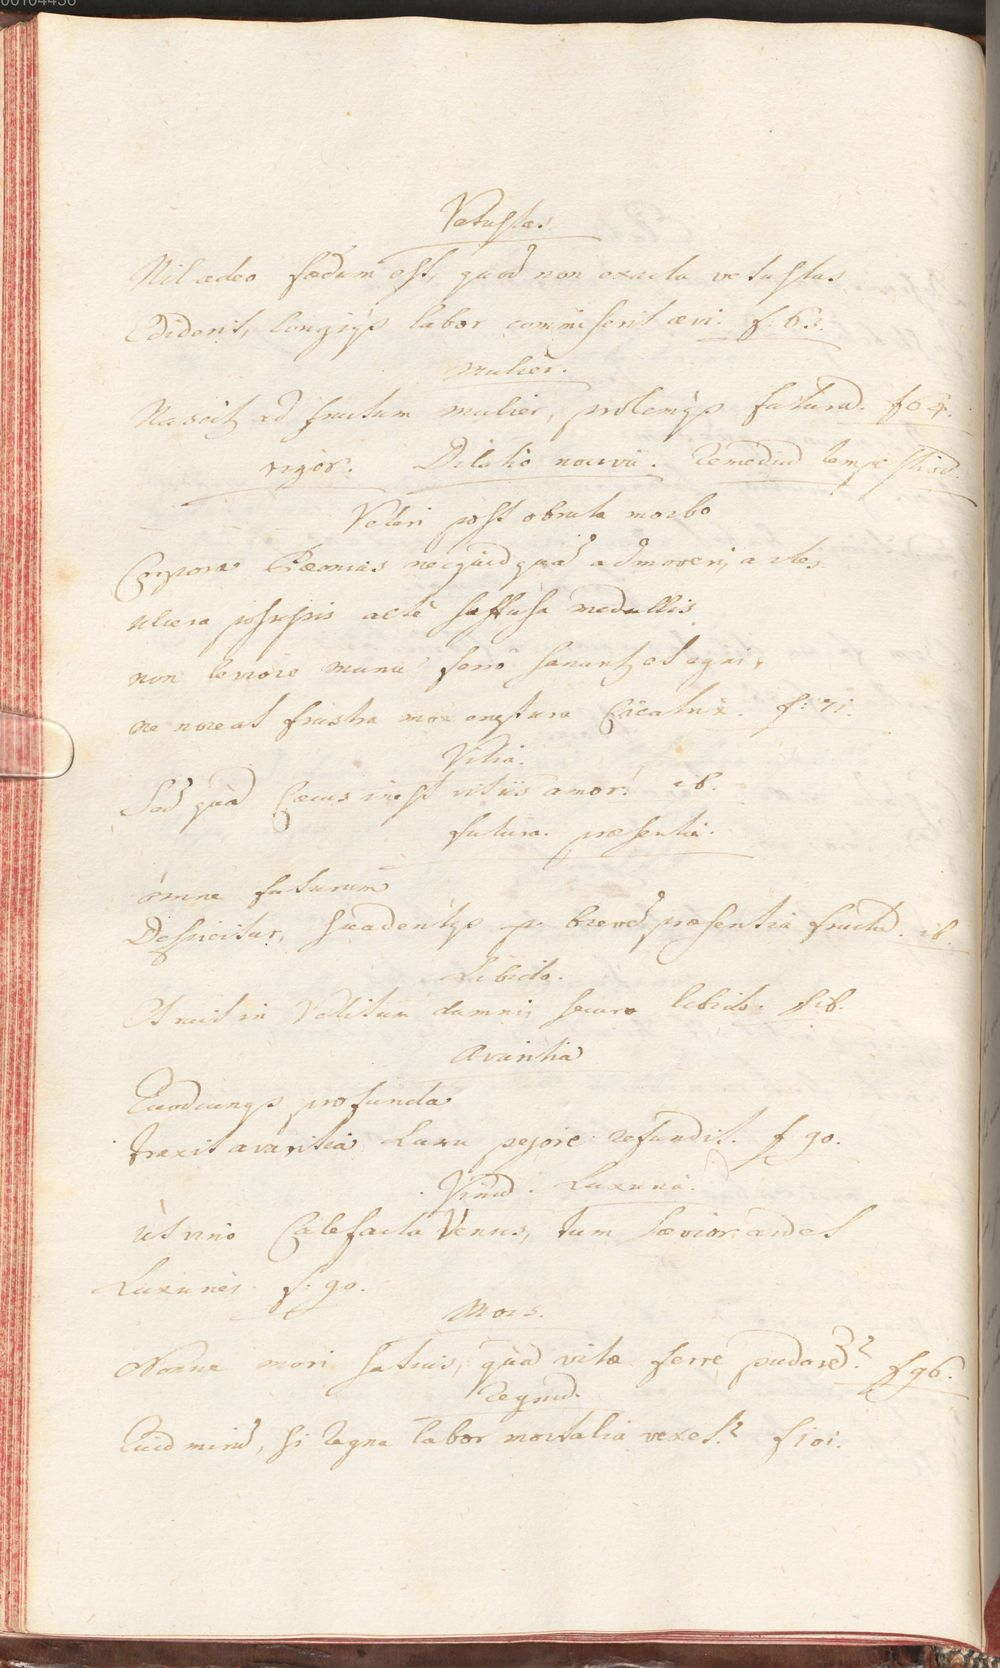 00104456
Vetustas
Nil adeo foedum est, quod non exacta vetustas
Ediderit, longiqs labor commiserit ævi. f. 63.
Mulier.
Nascitz ad fructum mulier, prolemqs futuram. f 64.
rigor. Dilatio nociva. Remediũ tempestivũ.
Veteri post obruta morbo
Corpora Pæonias necquidquã admoveris artes,
ulcera possessis altè suffusa medullis
non leviore manu ferro sanantz et igni,
ne noceat frustra mox eruptura Cicatrix. f: 71.
Vitia.
Sed quàm Cæcus inest vitiis amor! ib.
futura. præsentia.
omne futurum
Despicitur, suadentqs brevẽ præsentia fructũ. ib.
Libido.
Et ruit in Vetitum damni secura libido. f ib.
Avaritia
Quodcunqs profunda
traxit avaritia Luxu pejore refundit. f 90.
Vinũ. Luxuria.
Ut vino Calefacta Venus, tum sævior ardet
Luxuries f: 90.
Mors.
Nonne mori satius, quàm vitæ ferre pudorẽ? f 96.
Regnũ.
Quid mirũ, si regna labor mortalia vexet? f 101.